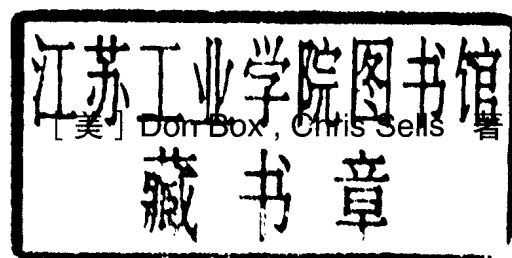 江苏工业学院图书馆
[美] Don Box , Chris Sells 著
藏书章